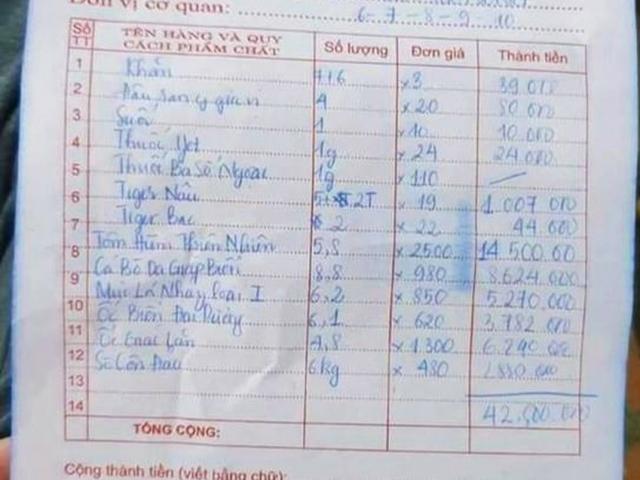 Đơn vị cơ quan:
6-7-8-9-10
Số TT TÊN HÀNG VÀ QUY CÁCH PHẨM CHẤT Số lượng Đơn giá Thành tiền
1 Khăn 7+6 x3 39.000
2 4 x20 80.000
3 Suối 1 x10 10.000
4 Thuốc Jet 1g x24 24.000
5 Thuốc Ba Số Ngoại 1g x110
6 Tiger Nâu 2T x 19 1.007 000
7 Tiger Bạc 2 x 22 44.000
Tôm Hùm Thiên Nhiên 5,8 x 2500 14 500.00
8 Cá Bò Da Giáp Biển 8,8 x 980 8.624.000
9 Mực Lá Nháy Loại I 6,2 x 850 5.270.000
10 Ốc Biển 6,1 x 620 3.782 000
11 Ốc 4,8 x 1.300 6.240 000
12 Sò 6kg x 480 2.880.000
13
14 42.500.000
TỔNG CỘNG:
Cộng thành tiền (viết bằng chữ):